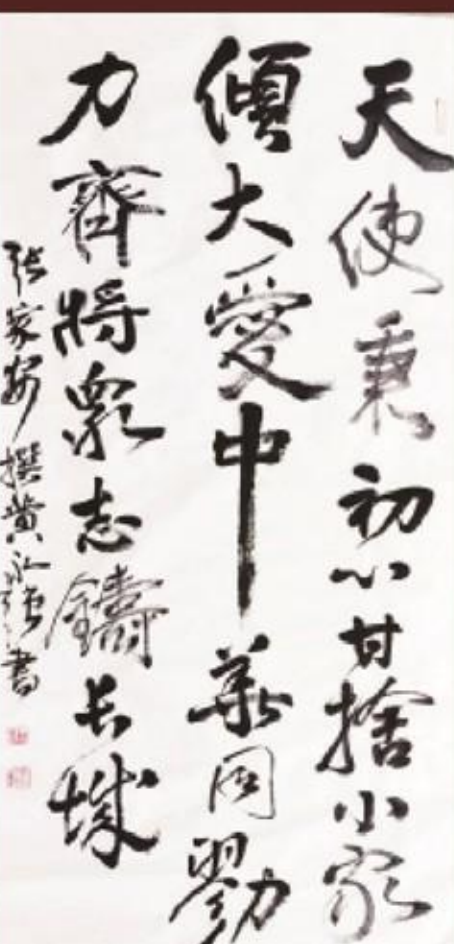 天使秉初心甘捨小家
傾大愛中華同勠
力齊將眾志鑄长城
張家安撰黄永强書